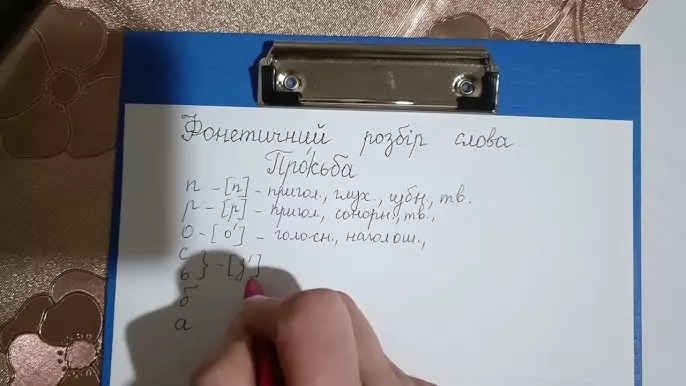 Фонетичний розбір слова
Про́сьба
п – [п] – пригол., глух., губн., тв.
р – [р] – пригол., сонорн., тв.,
о – [о′] – голосн., наголош.,
с
ь } – [з′]
б
а